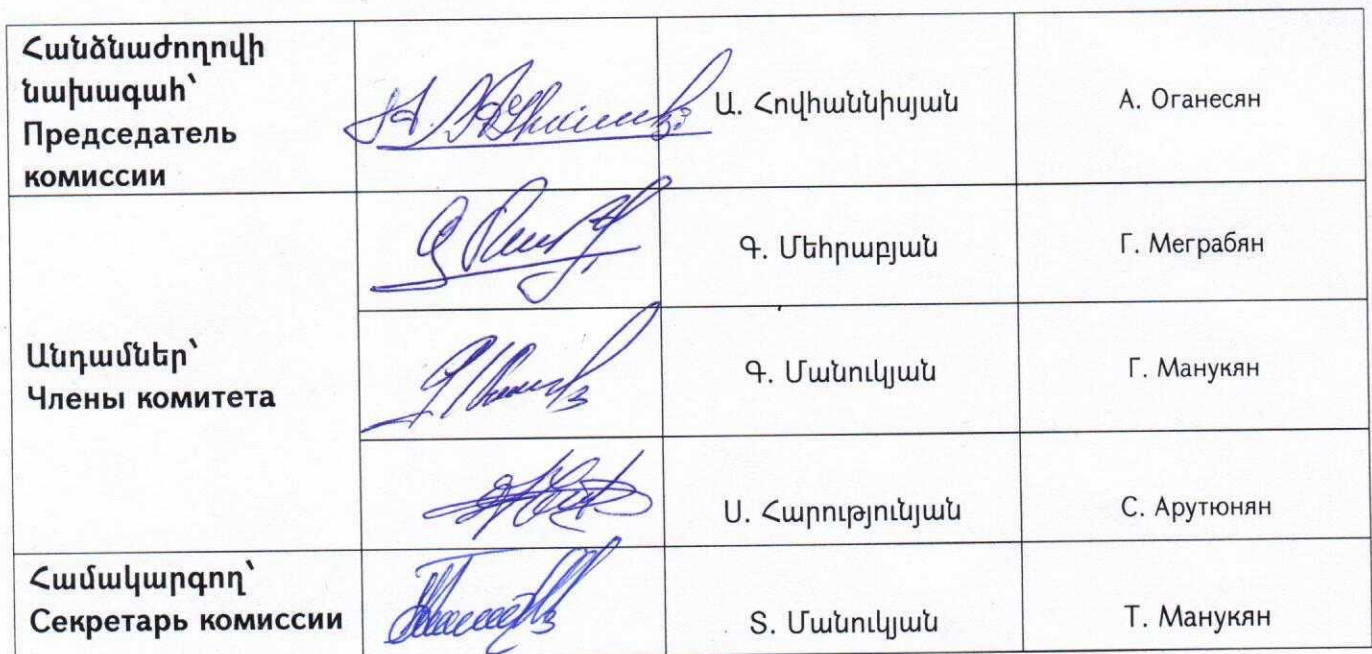 Հանձնաժողովի
նախագահ՝
Председатель
комиссии
Ա. Հովհաննիսյան
А. Оганесян
Անդամներ՝
Члены комитета
Գ. Մեհրաբյան
Г. Меграбян
Գ. Մանուկյան
Г. Манукян
Ս. Հարությունյան
С. Арутюнян
Համակարգող՝
Секретарь комиссии
Տ. Մանուկյան
Т. Манукян